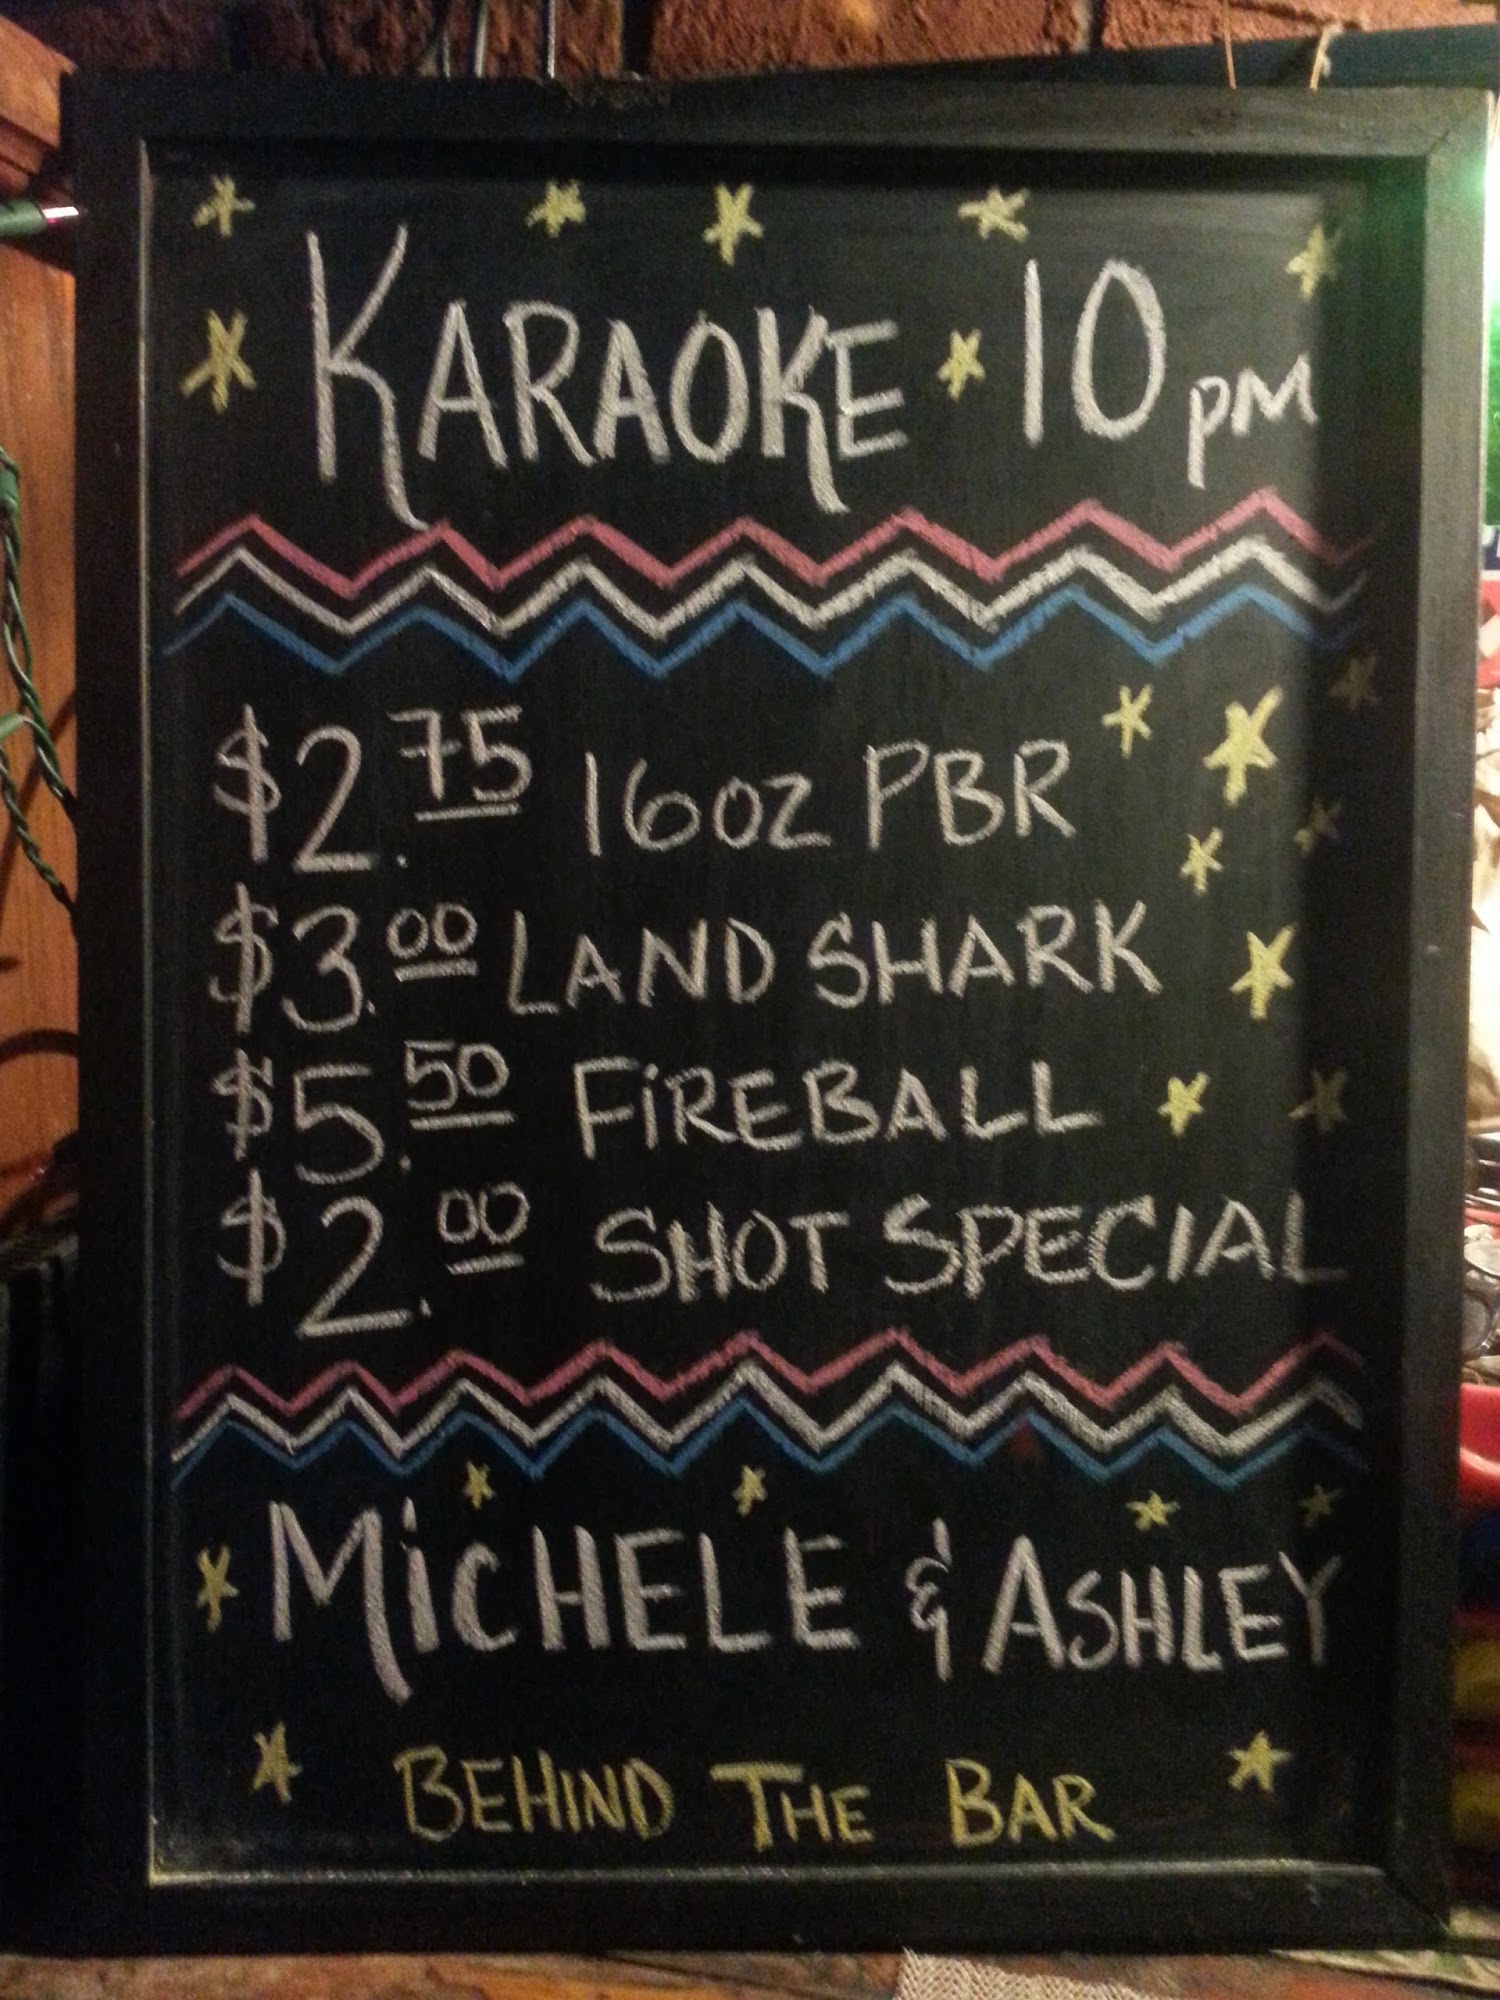 KARAOKE 10 PM
$2.75 16OZ PBR
$3.00 LAND SHARK
$5.50 FiREBALL
$2.00 SHOT SPECIAL
MiCHELE & ASHLEY
BEHIND THE BAR